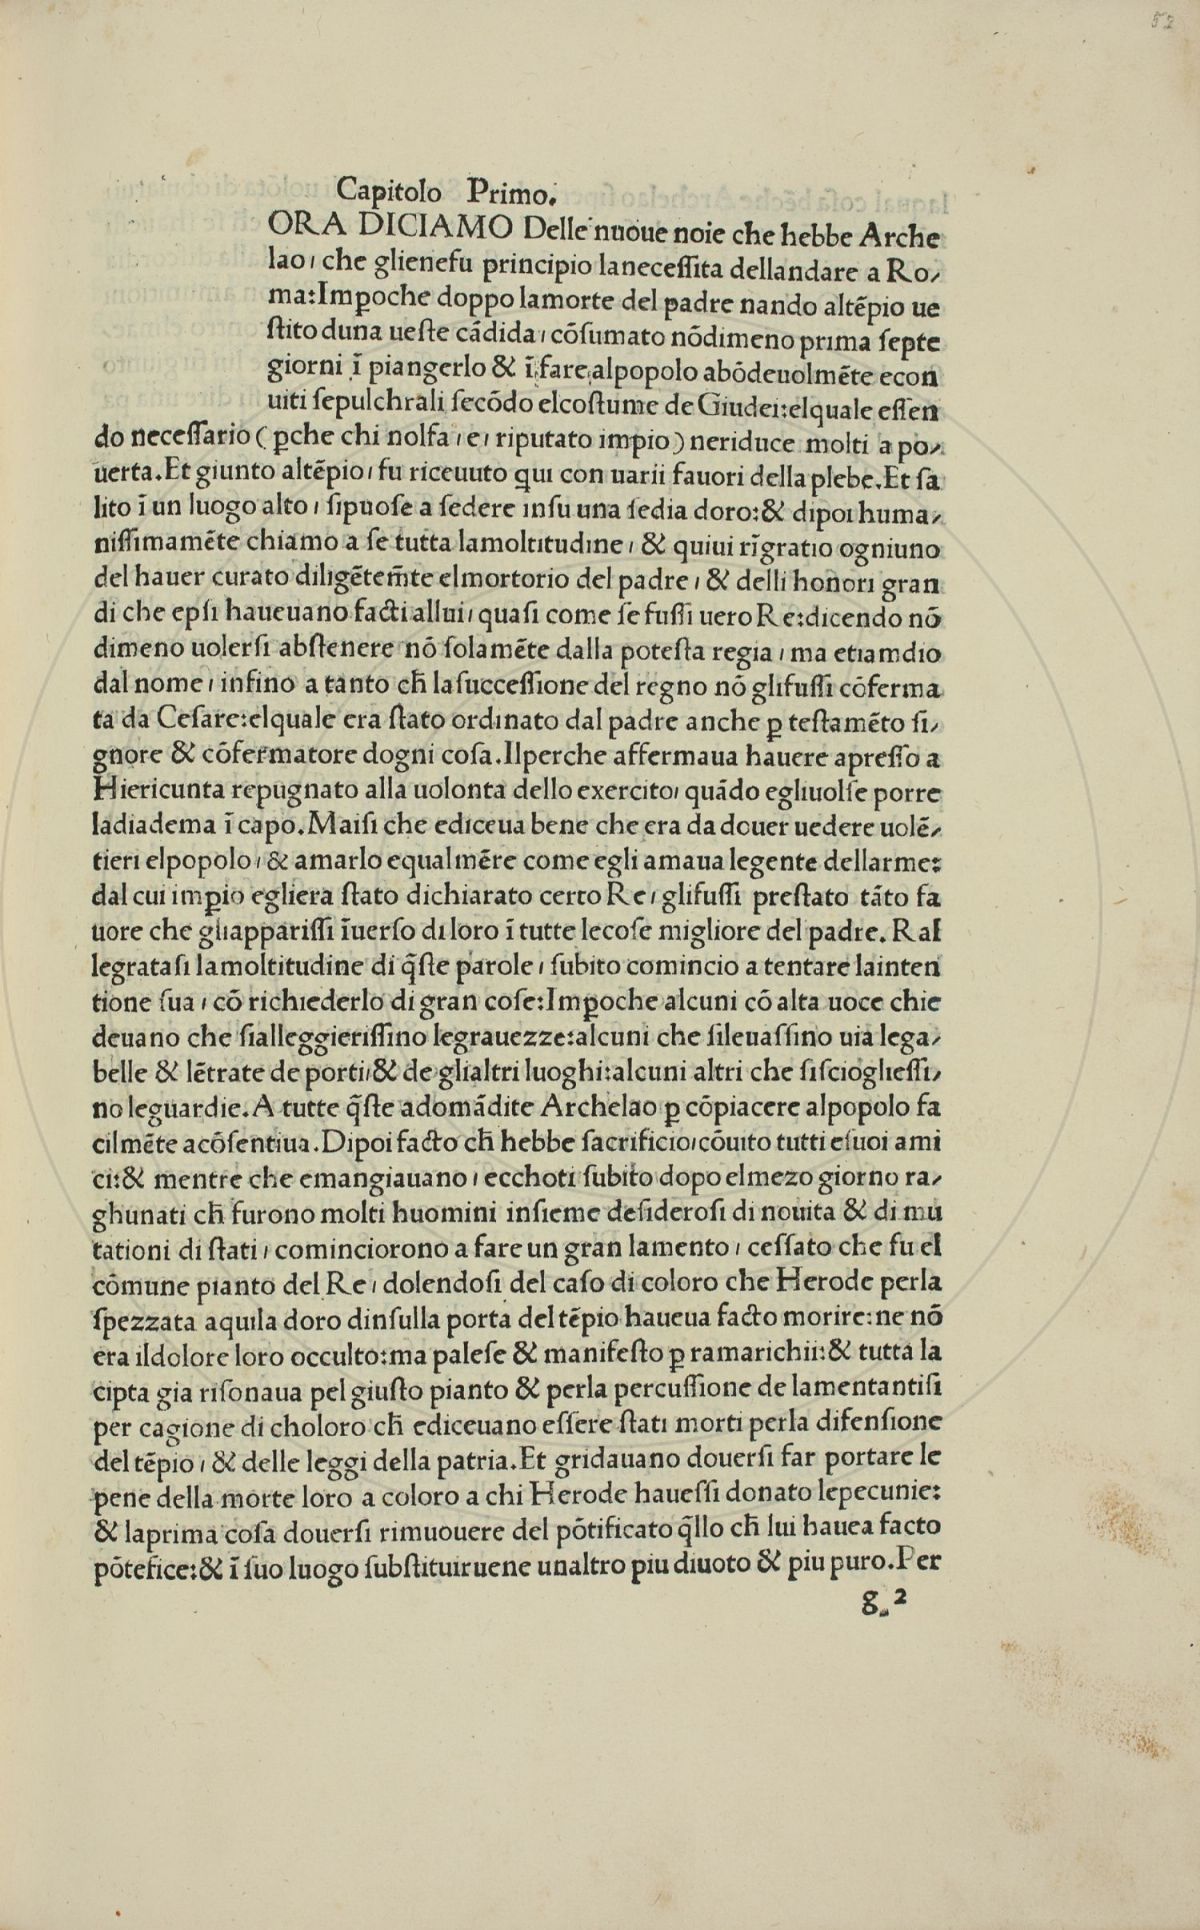 52
Capitolo Primo.
ORA DICIAMO Delle nuoue noie che hebbe Arche
lao, che glienefu principio laneceſſita dellandare a Ro⸗
ma:Imꝑoche doppo lamorte del padre nando altẽpio ue
ſtito duna ueſte cãdida, cõſumato nõdimeno prima ſepte
giorni ĩ piangerlo & ĩ fare alpopolo abõdeuolmẽte econ
uiti ſepulchrali ſecõdo elcoſtume de Giudei:elquale eſſen
do neceſſario (ꝑche chi nolfa, e, riputato impio) neriduce molti a po⸗
uerta.Et giunto altẽpio, fu riceuuto qui con uarii fauori della plebe.Et ſa
lito ĩ un luogo alto, ſipuoſe a ſedere inſu una ſedia doro:& dipoi huma⸗
niſſimamẽte chiamo a ſe tutta lamoltitudine, & quiui rĩgratio ogniuno
del hauer curato diligẽtem̃te elmortorio del padre, & delli honori gran
di che epſi haueuano facti allui, quaſi come ſe fuſſi uero Re:dicendo nõ
dimeno uolerſi abſtenere nõ ſolamẽte dalla poteſta regia, ma etiamdio
dal nome, infino a tanto ch̃ laſucceſſione del regno nõ glifuſſi cõferma
ta da Ceſare:elquale era ſtato ordinato dal padre anche ꝑ teſtamẽto ſi⸗
gnore & cõfermatore dogni coſa.Ilperche affermaua hauere apreſſo a
Hiericunta repugnato alla uolonta dello exercito, quãdo egliuolſe porre
ladiadema ĩ capo.Maiſi che ediceua bene che era da douer uedere uolẽ⸗
tieri elpopolo, & amarlo equalmẽre come egli amaua legente dellarme:
dal cui imꝑio egliera ſtato dichiarato certo Re, glifuſſi preſtato tãto fa
uore che gliappariſſi ĩuerſo di loro ĩ tutte lecoſe migliore del padre. Ral
legrataſi lamoltitudine di q̃ſte parole, ſubito comincio a tentare lainten
tione ſua, cõ richiederlo di gran coſe:Imꝑoche alcuni cõ alta uoce chie
deuano che ſialleggieriſſino legrauezze:alcuni che ſileuaſſino uia lega⸗
belle & lẽtrate de porti,& de glialtri luoghi:alcuni altri che ſiſciogliеſſi⸗
no leguardie.A tutte q̃ſte adomãdite Archelao ꝑ cõpiacere alpopolo fa
cilmẽte acõſentiua.Dipoi facto ch̃ hebbe ſacrificio,cõuito tutti eſuoi ami
ci:& mentre che emangiauano, ecchoti ſubito dopo elmezo giorno ra⸗
ghunati ch̃ furono molti huomini inſieme deſideroſi di nouita & di mu
tationi di ſtati, cominciorono a fare un gran lamento, ceſſato che fu el
cõmune pianto del Re, dolendoſi del caſo di coloro che Herode perla
ſpezzata aquila doro dinſulla porta del tẽpio haueua facto morire:ne nõ
era ildolore loro occulto:ma paleſe & manifeſto ꝑ ramarichii:& tutta la
cipta gia riſonaua pel giuſto pianto & perla percuſſione de lamentantiſi
per cagione di choloro ch̃ ediceuano eſſere ſtati morti perla difenſione
del tẽpio, & delle leggi della patria.Et gridauano douerſi far portare le
pene della morte loro a coloro a chi Herode haueſſi donato lepecunie:
& laprima coſa douerſi rimuouere del põtificato q̃llo ch̃ lui hauea facto
põtefice:& ĩ ſuo luogo ſubſtituiruene unaltro piu diuoto & piu puro.Per
g 2